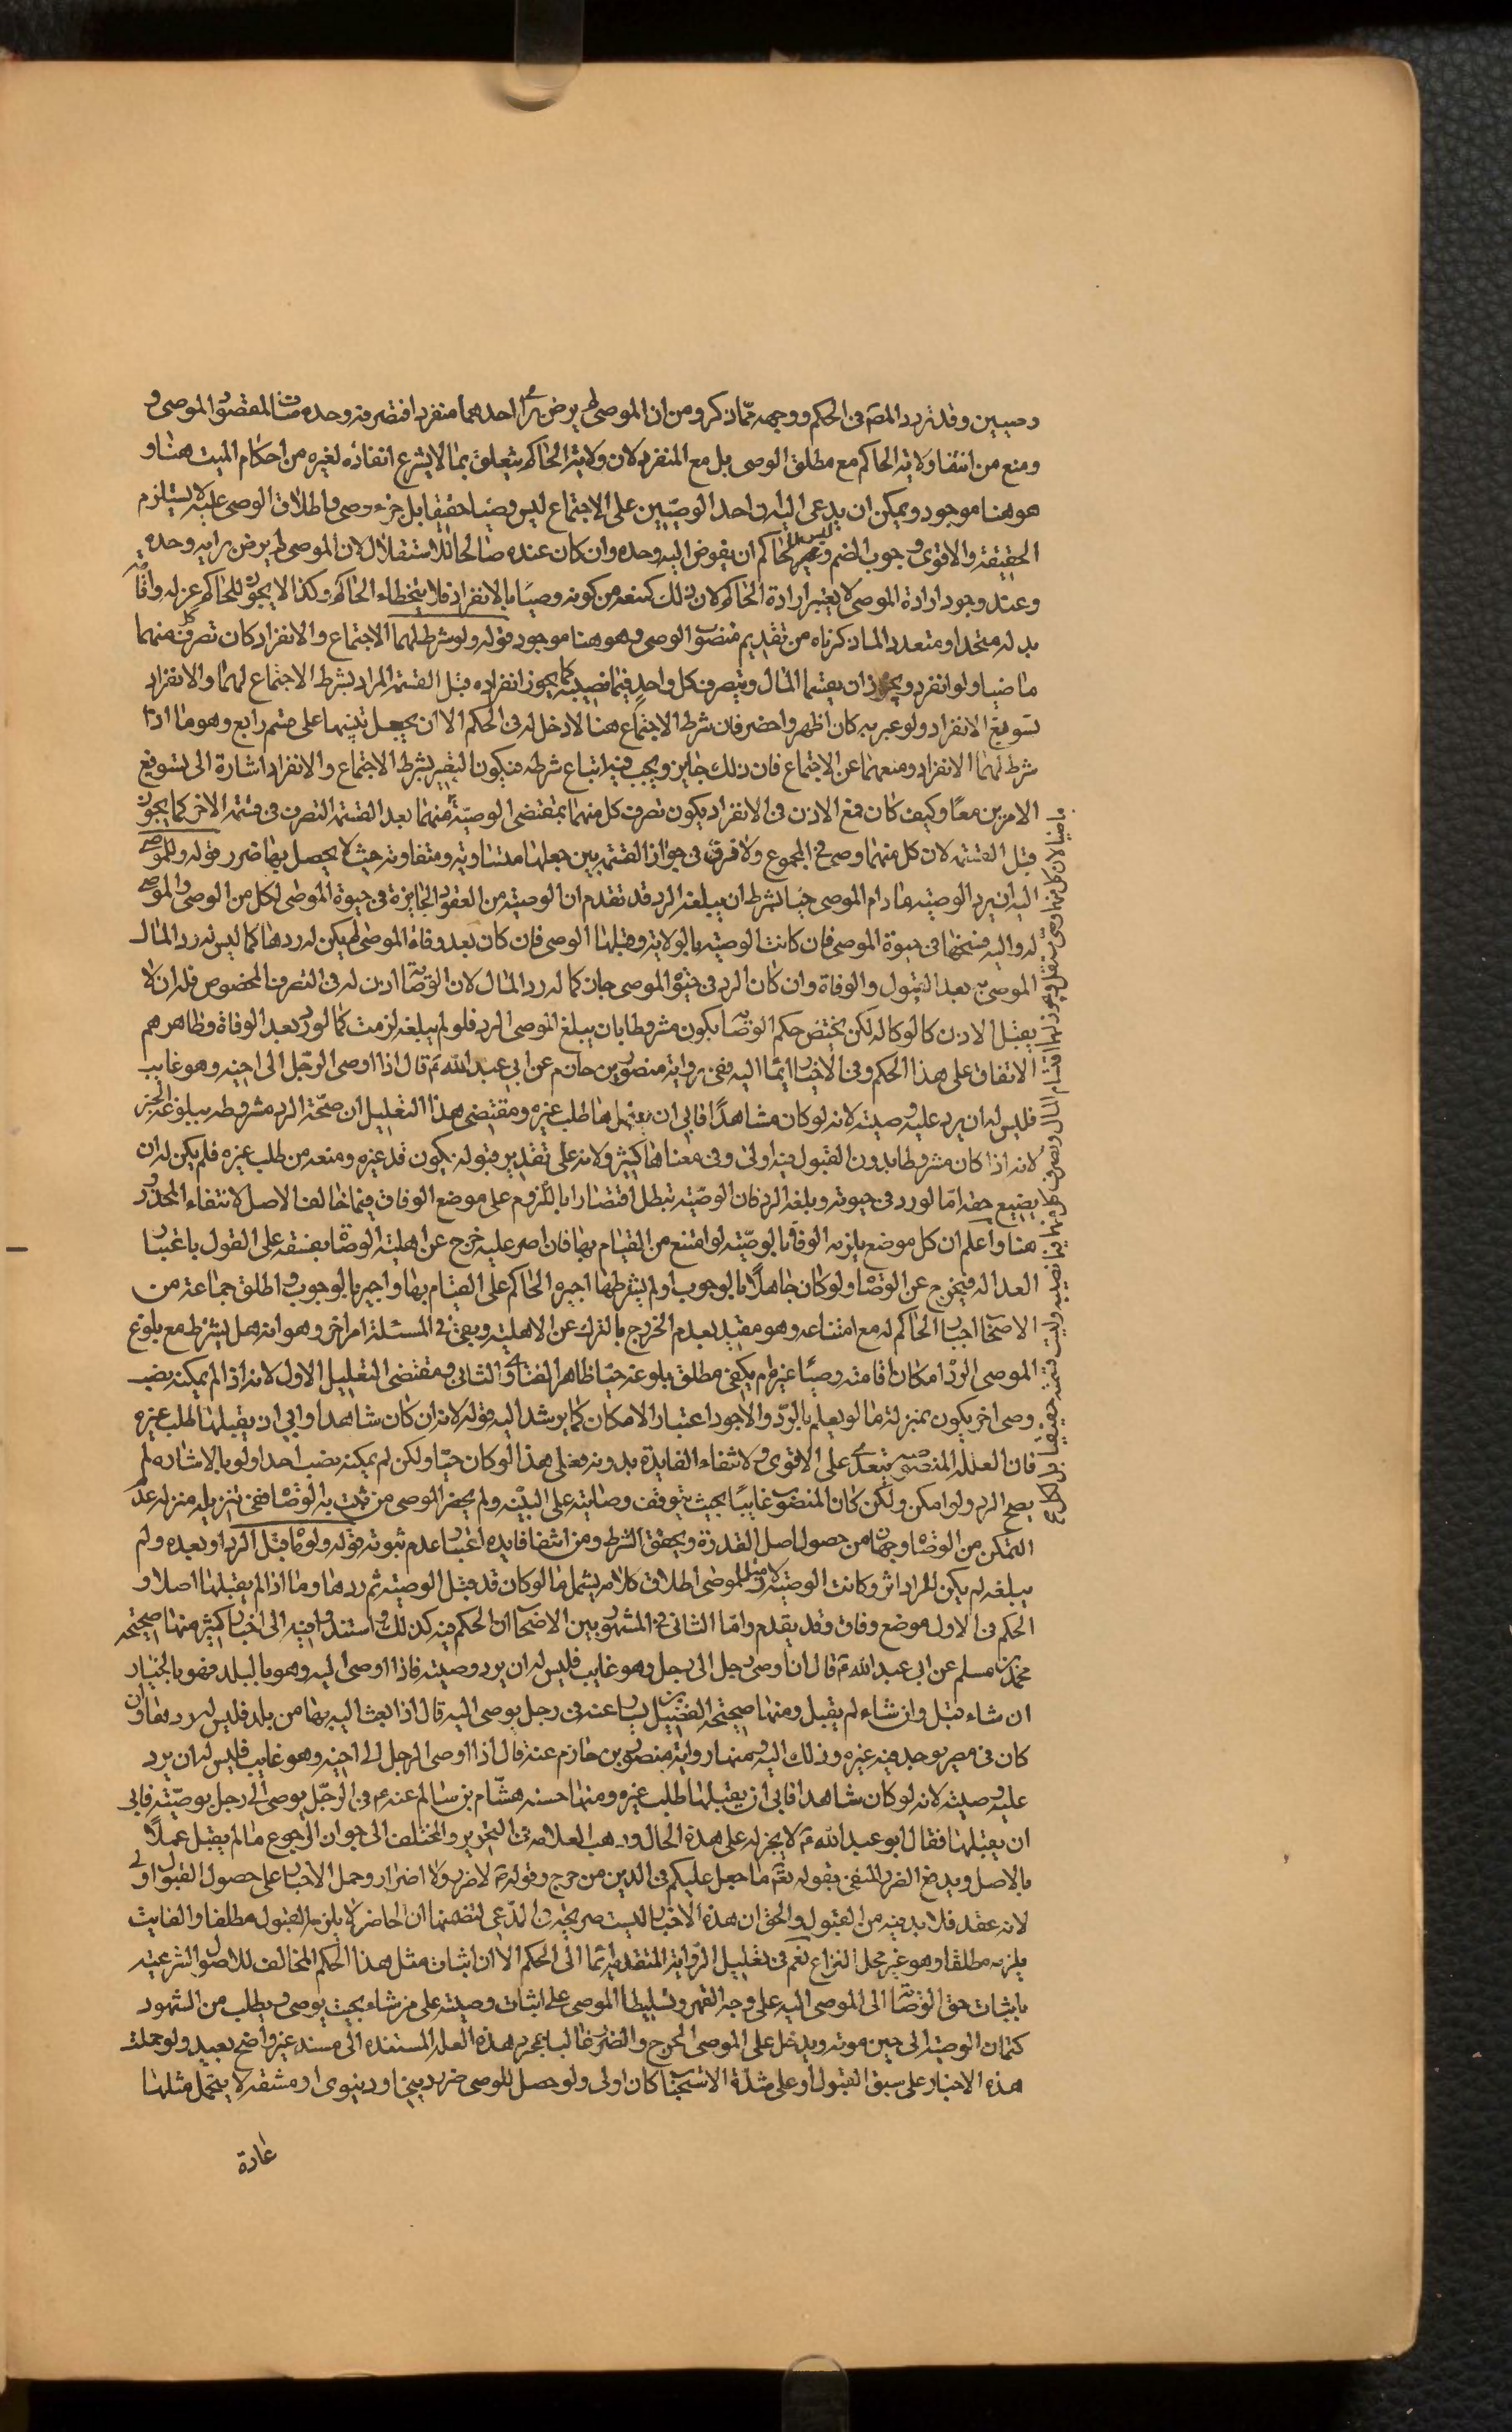 وصيين وقد تردد المصَ في الحكم ووجهه مما ذكر ومن ان الموصي لم يرض براي احدهما منفردا فتصرفه وحده مناف لمقصود الموصي و
ومنع من انتفا ولاية الحاكم مع مطلق الوصي بل مع المنفرد لان ولاية الحاكم يتعلق بما لا يشرع انفاذه لغيره من احكام الميت هنا و
هو هنا موجود ويمكن ان يدعي اليه ان احد الوصيّين على الاجتماع ليس وصيا حقيقيا بل جزء وصي واطلاق الوصي عليه لا يستلزم
الحقيقة والاقوى وجوب الضم وليس للحاكم ان يفوض اليه وحده وان كان عنده صالحا للاستقلال لان الموصي لم يرض برايه وحده
وعند وجود ارادة الموصي لا يعتبر ارادة الحاكم لان ذلك كمنعه من كونه وصيّا بالانفراد فلا يتخطاه الحاكم وكذا لا يجوز للحاكم عزله واقامة
بدله متحدا ومتعددا لما ذكرناه من تقديم منصوب الوصي وهو هنا موجود قوله ولو شرط لهما الاجتماع والانفراد كان تصرف كل منهما
ماضيا ولو انفرد ويجوز ان يقتسما المال ويتصرف كل واحد فيما نصيبه كما يجوز انفراده قبل القسمة المراد بشرط الاجتماع لهما والانفراد
تسويغ الانفراد ولو عبر به كان اظهر واخصر فان شرط الاجتماع هنا لا دخل له في الحكم الا ان يجعل تنبيها على قسم رابع وهو ما اذا
شرط لهما الانفراد ومنعهما عن الاجتماع فان ذلك جايز ويجب فيه اتباع شرطه فيكون التعبير بشرط الاجتماع والانفراد اشارة الى تسويغ
الامرين معًا وكيف كان فمع الاذن في الانفراد يكون تصرف كل منهما بمقتضى الوصيّة منهما بعد القسمة التصرف في قسمة الاخر كما يجوز
قبل القسمة لان كل منهما وصي في المجموع ولا فرق في جواز القسمة بين جعلها متساوية ومتفاوتة حيث لا يحصل بها ضرر قوله وللموصى
اليه ان يرد الوصية ما دام الموصي حيا بشرط ان يبلغه الرد قد تقدم ان الوصية من العقود الجايزة في حيوة الموصي لكل من الوصي والموصى
له واليه فسخها في حيوة الموصي فان كانت الوصية بالولاية وقبلها الوصي فان كان بعد وفاة الموصي لم يكن له ردها كما ليس له رد المال
الموصى به بعد القبول والوفاة وان كان الرد في حيوة الموصي جاز كما له رد المال لان الوصاية اذن له في التصرف المخصوص فله ان لا
يقبل الاذن كالوكالة لكن يختص حكم الوصاية بكون مشروطا بان يبلغ الموصي الرد فلو لم يبلغه لزمت كما لو رد بعد الوفاة وظاهرهم
الاتفاق على هذا الحكم وفي الاخبار ايما اليه ففي رواية منصور بن حازم عن ابي عبد الله ع قال اذا اوصى الرجل الى اخيه وهو غايب
فليس له ان يرد عليه وصيته لانه لو كان شاهدًا فابى ان يقبلها طلب غيره ومقتضى هذا التعليل ان صحّة الرد مشروطه ببلوغه الخبر
لانه اذا كان مشروطا بدون القبول فيه اولى وفي معناها كثير ولانه على تقدير قبوله يكون قد غره ومنعه من طلب غيره فلم يكن له ان
يضيع حقه امّا لو رد في حيوته وبلغه الرد فان الوصيّة تبطل اقتصارا باللزوم على موضع الوفاق فيما خالف الاصل لانتفاء المحذور
هنا واعلم ان كل موضع يلزمه الوفا بالوصيّة لو امتنع من القيام بها فان اصر عليه خرج عن اهلية الوصاية بفسقه على القول باعتبار
العداله فيخرج عن الوصاية ولو كان جاهلًا بالوجوب او لم يشرطها اجبره الحاكم على القيام بها واخبره بالوجوب واطلق جماعة من
الاصحاب اجبار الحاكم له مع امتناعه وهو مقيد بعدم الخروج بالترك عن الاهلية وبقي في المسئلة امر اخر وهو انه هل يشترط مع بلوغ
الموصي الردّ امكان اقامته وصيًا غيره ام يكفي مطلق بلوغه حيّا ظاهر الفتاوى الثاني ومقتضى التعليل الاول لانه اذا لم يمكنه نصب
وصي اخر يكون بمنزلة ما لو يعلم بالردّ والاجود اعتبار الامكان كما يرشد اليه قوله لانه ان كان شاهدا وابى ان يقبلها طلب غيره
فان العلله المنصوصة تتعدى على الاقوى ولانتفاء الفايدة بدونه فعلى هذا لو كان حيّا ولكن لم يمكنه نصب احد ولو بالاشاره لم
يصح الرد ولو امكن ولكن كان المنصوب غايبًا بحيث يتوقف وصايته على البيّنة ولم يحضر الموصي من تثبت به الوصاية ففي تنزيله منزلة عدم
التمكن من الوصاية وجهان من حصول اصل القدرة وتحقق الشرط ومن انتفا فايدة اعتبار عدم ثبوته قوله ولو مات قبل الرد او بعده ولم
يبلغه لم يكن للرد اثر وكانت الوصية لازمة للموصى اطلاق كلامه يشمل ما لو كان قد قبل الوصية ثم ردها وما اذا لم يقبلها اصلا و
الحكم في الاول موضع وفاق وقد يقدم وامّا الثاني فالمشهور بين الاصحاب ان الحكم فيه كذلك واستندوا فيه الى اخبار كثيرة منها صحيحة
محمّد بن مسلم عن ابي عبد الله ع قال ان اوصى رجل الى رجل وهو غايب فليس له ان يرد وصيته فاذا اوصى اليه وهو بالبلد فهو بالخيار
ان شاء قبل وان شاء لم يقبل ومنها صحيحة الفضيل بن يسار عنه في رجل يوصى اليه قال اذا بعث اليه بها من بلد فليس له ردها وان
كان في مصر يوجد فيه غيره فذلك اليه ومنها رواية منصور بن حازم عنه قال اذا اوصى الرجل الى اخيه وهو غايب فليس له ان يرد
عليه وصيته لانه لو كان شاهدا فابى ان يقبلها طلب غيره ومنها حسنه هشام بن سالم عنه ع في الرجل يوصى الى رجل بوصيّة فابى
ان يقبلها فقال ابو عبد الله ع لا يخذله على هذه الحال وذهب العلامة في التحرير والمختلف الى جواز الرجوع ما لم يقبل عملًا
بالاصل ويدفع الضرر المنفي بقوله تعَ ما جعل عليكم في الدين من حرج وقوله ع لا ضرر ولا اضرار وحمل الاخبار على حصول القبول اولى
لانه عقد فلا بد فيه من القبول والحق ان هذه الاخبار ليست صريحة في المدّعى لتضمنها ان الحاضر لا يلزمه القبول مطلقا والغايب
يلزمه مطلقا وهو غير محل النزاع نعم في تعليل الرواية المتقدمة ايما الى الحكم الا ان اثبات مثل هذا الحكم المخالف للاصول الشرعية
باثبات حق الوصاية الى الموصى اليه على وجه القهر وتسليط الموصي على اثبات وصيته على من شاء بحيث يوصي ويطلب من الشهود
كتمان الوصية الى حين موته ويدخل على الموصى الحرج والضرر غالبا بمجرد هذه العلة المستنده الى مسند غير واضح بعيد ولو حملت
هذه الاخبار على سبق القبول او على شدّة الاستحباب كان اولى ولو حصل للموصى ضرر ديني او دنيوي او مشقة لا يتحمل مثلها
عادة
ماضيا لان كل منهما وصي مستقل ويجوز لهما اقتسام المال وتصرف كل منهما فيما نصيبه وليست قسمة حقيقية